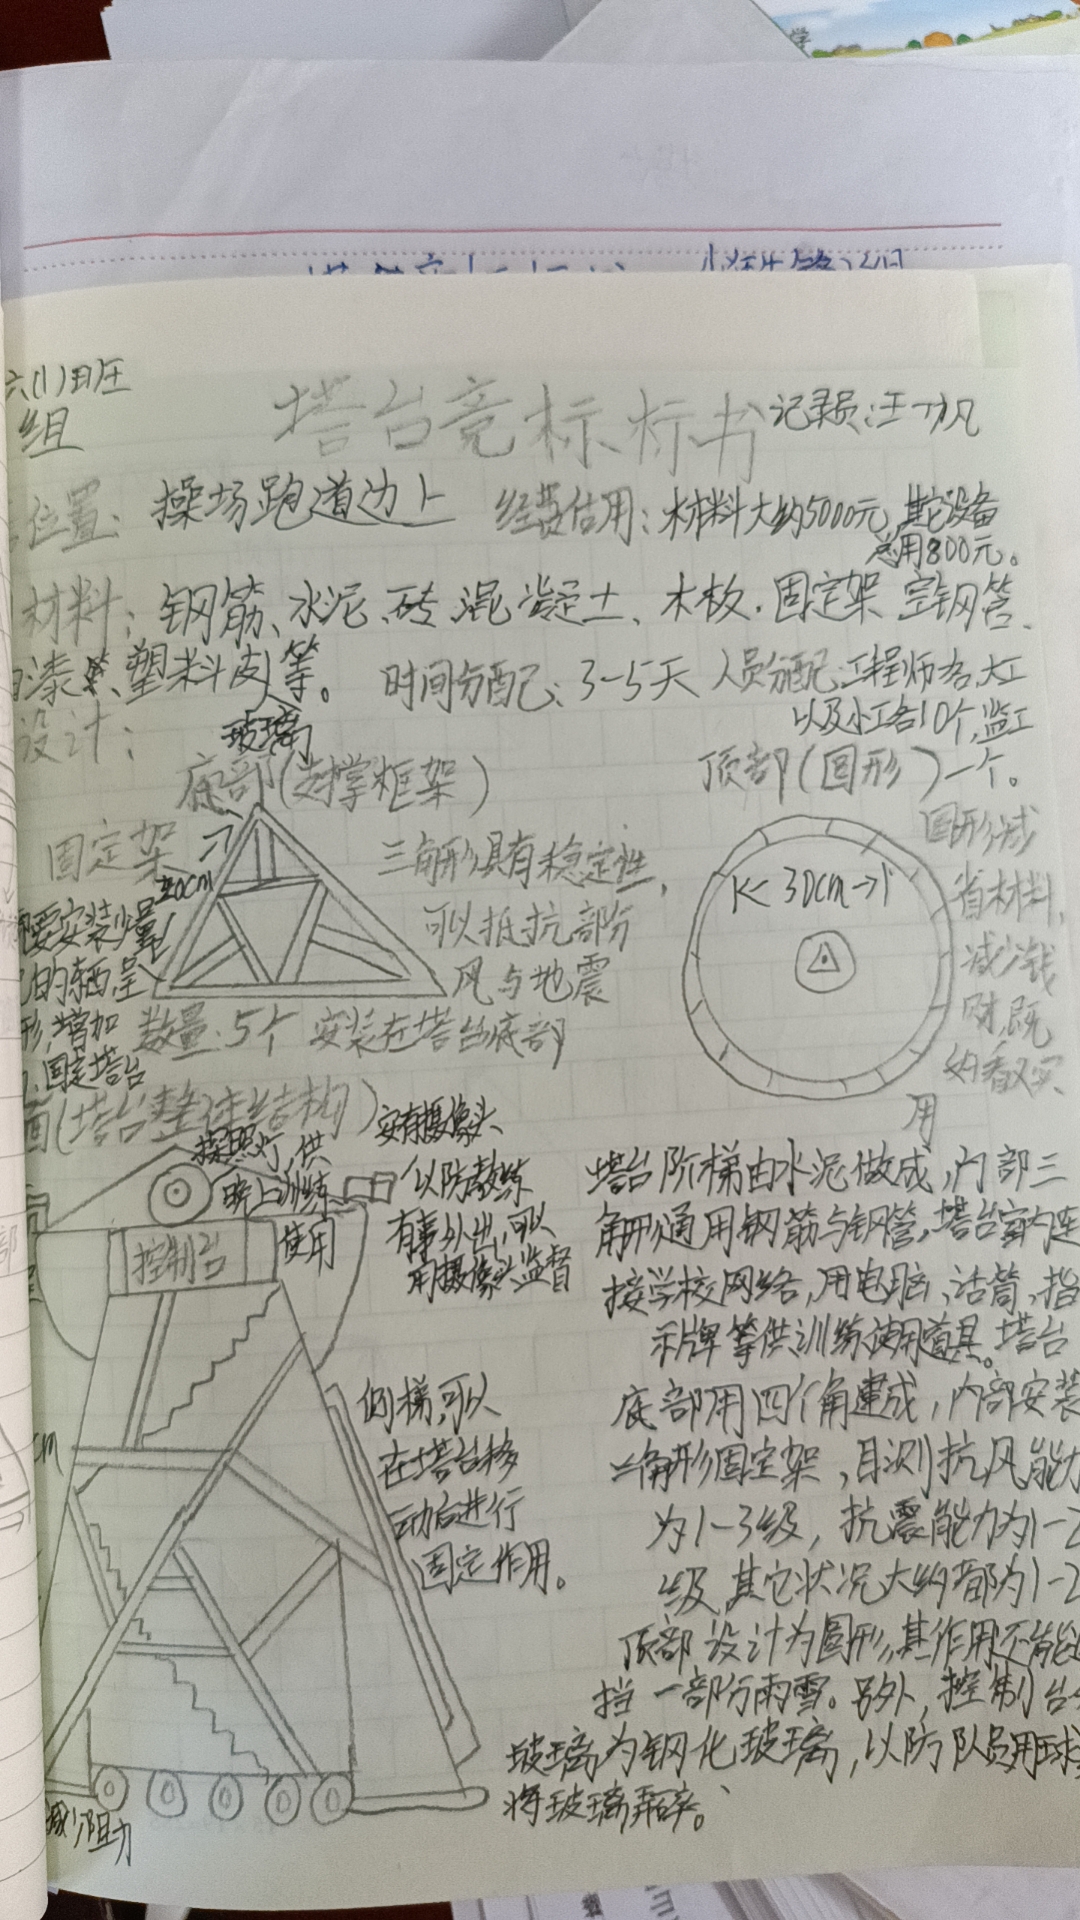 六(1)班
组
塔台竞标标书
记录员:汪一帆
位置：操场跑道边上
经费估用：材料大约5000元,其它设备
总用800元。
材料：钢筋、水泥、砖、混凝土、木板、固定架 空钢管、
漆、塑料皮等。
玻璃
时间分配：3-5天
人员分配:工程师各,大工
以及小工各10个,监工
一个。
设计：
底部(支撑框架)
顶部(圆形)
固定架
30cm
三角形具有稳定性,
可以抵抗部分
风与地震
要安装少量
的东西,呈
形,增加
固定塔台
数量:5个 安装在塔台底部
K< 30cm→
圆形减
省材料,
减少钱
财,既
好看又实
用
面(塔台整体结构)
探照灯,供
晚上训练
使用
安有摄像头
以防教练
有事外出,可以
用摄像头监督
控制台
cm
侧梯,可以
在塔台移
动后进行
固定作用。
减少阻力
塔台阶梯由水泥做成,内部三
角形通用钢筋与钢管,塔台室内连
接学校网络,用电脑、话筒、指
示牌等供训练使用道具。塔台
底部用四个角建成,内部安装
三角形固定架,目测抗风能力
为1-3级,抗震能力为1-2
级,其它状况大约都为1-2
顶部设计为圆形,其作用不能
挡一部分雨雪。另外,控制台
玻璃为钢化玻璃,以防队员用球
将玻璃弄碎。